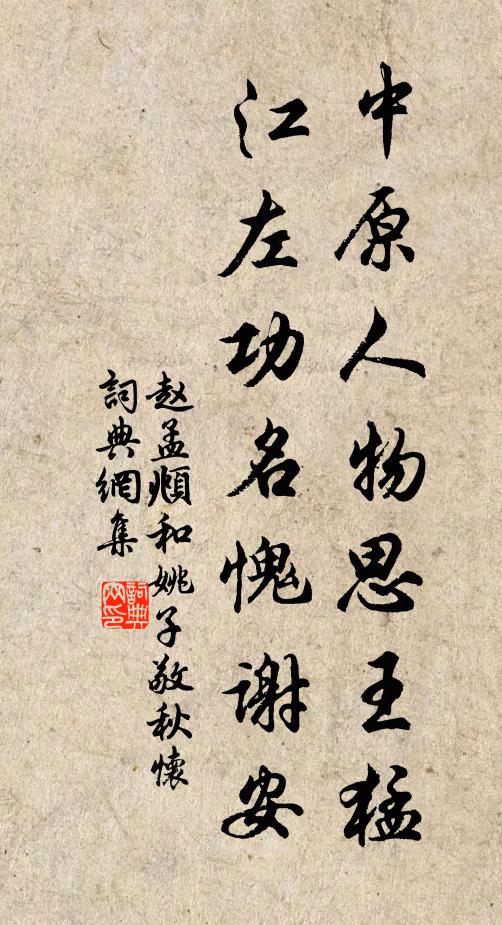 中原人物思王猛
江左功名愧谢安
赵孟頫和姚子敬秋懷
詞典網集
詞典
网印